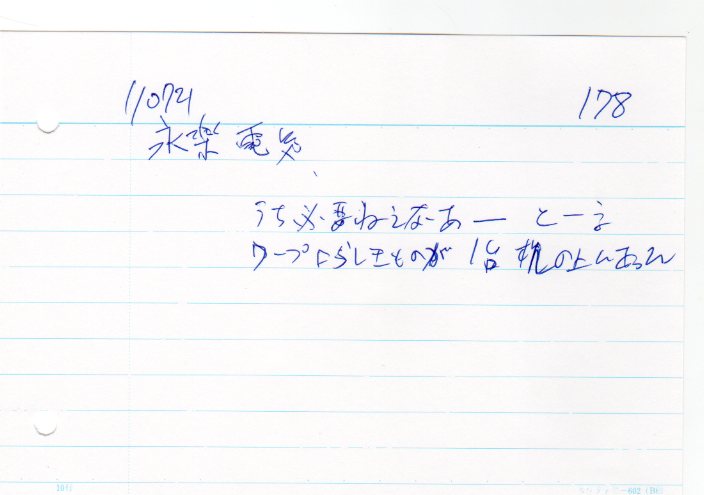 11072	178
永楽電気
うち必要ねえなあ ― と一言
ワープロらしきものが 1台 机の上にあった